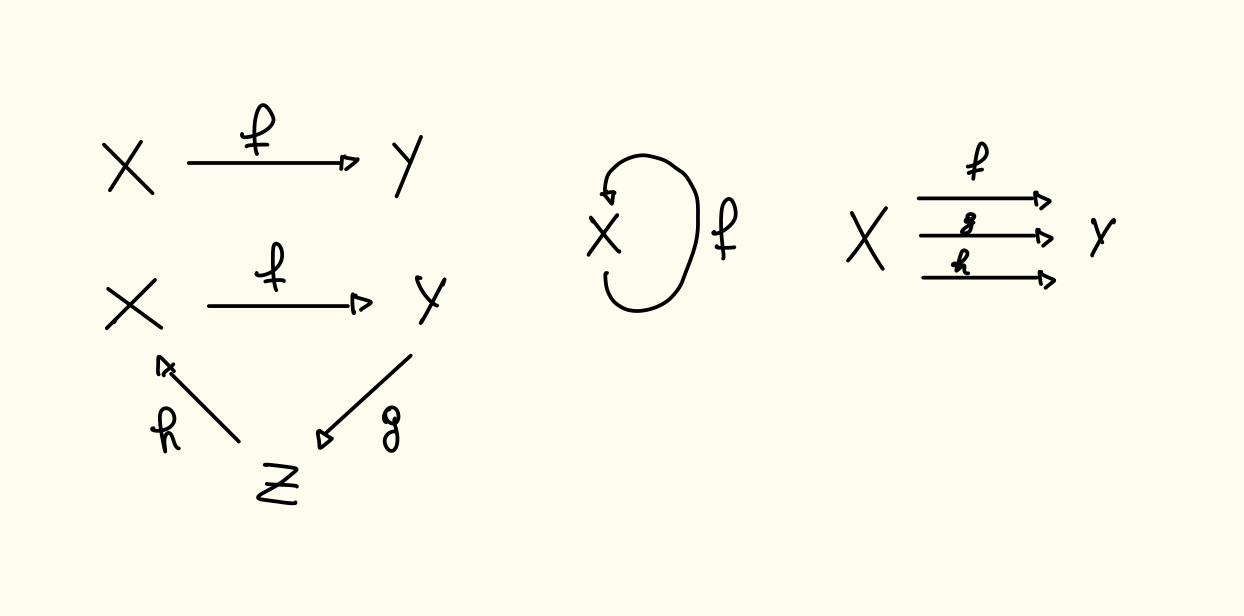 X f Y
X f Y
h g
Z
X f
X f Y
g
h